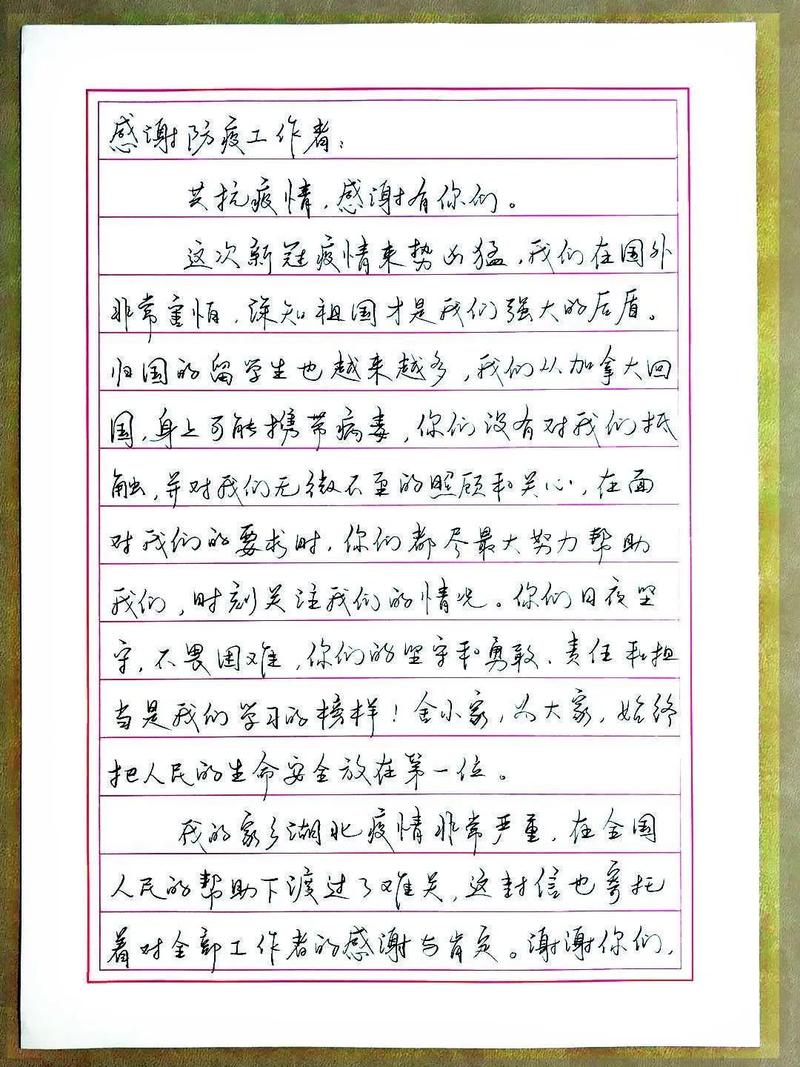 感谢防疫工作者：
共抗疫情，感谢有你们。
这次新冠疫情来势凶猛，我们在国外
非常害怕，深知祖国才是我们强大的后盾。
归国的留学生也越来越多，我们从加拿大回
国，身上可能携带病毒，你们没有对我们抵
触，并对我们无微不至的照顾和关心，在面
对我们的要求时，你们都尽最大努力帮助
我们，时刻关注我们的情况。你们日夜坚
守，不畏困难，你们的坚守和勇敢、责任和担
当是我们学习的榜样！舍小家，为大家，始终
把人民的生命安全放在第一位。
我的家乡湖北疫情非常严重，在全国
人民的帮助下渡过了难关，这封信也寄托
着对全部工作者的感谢与肯定。谢谢你们，